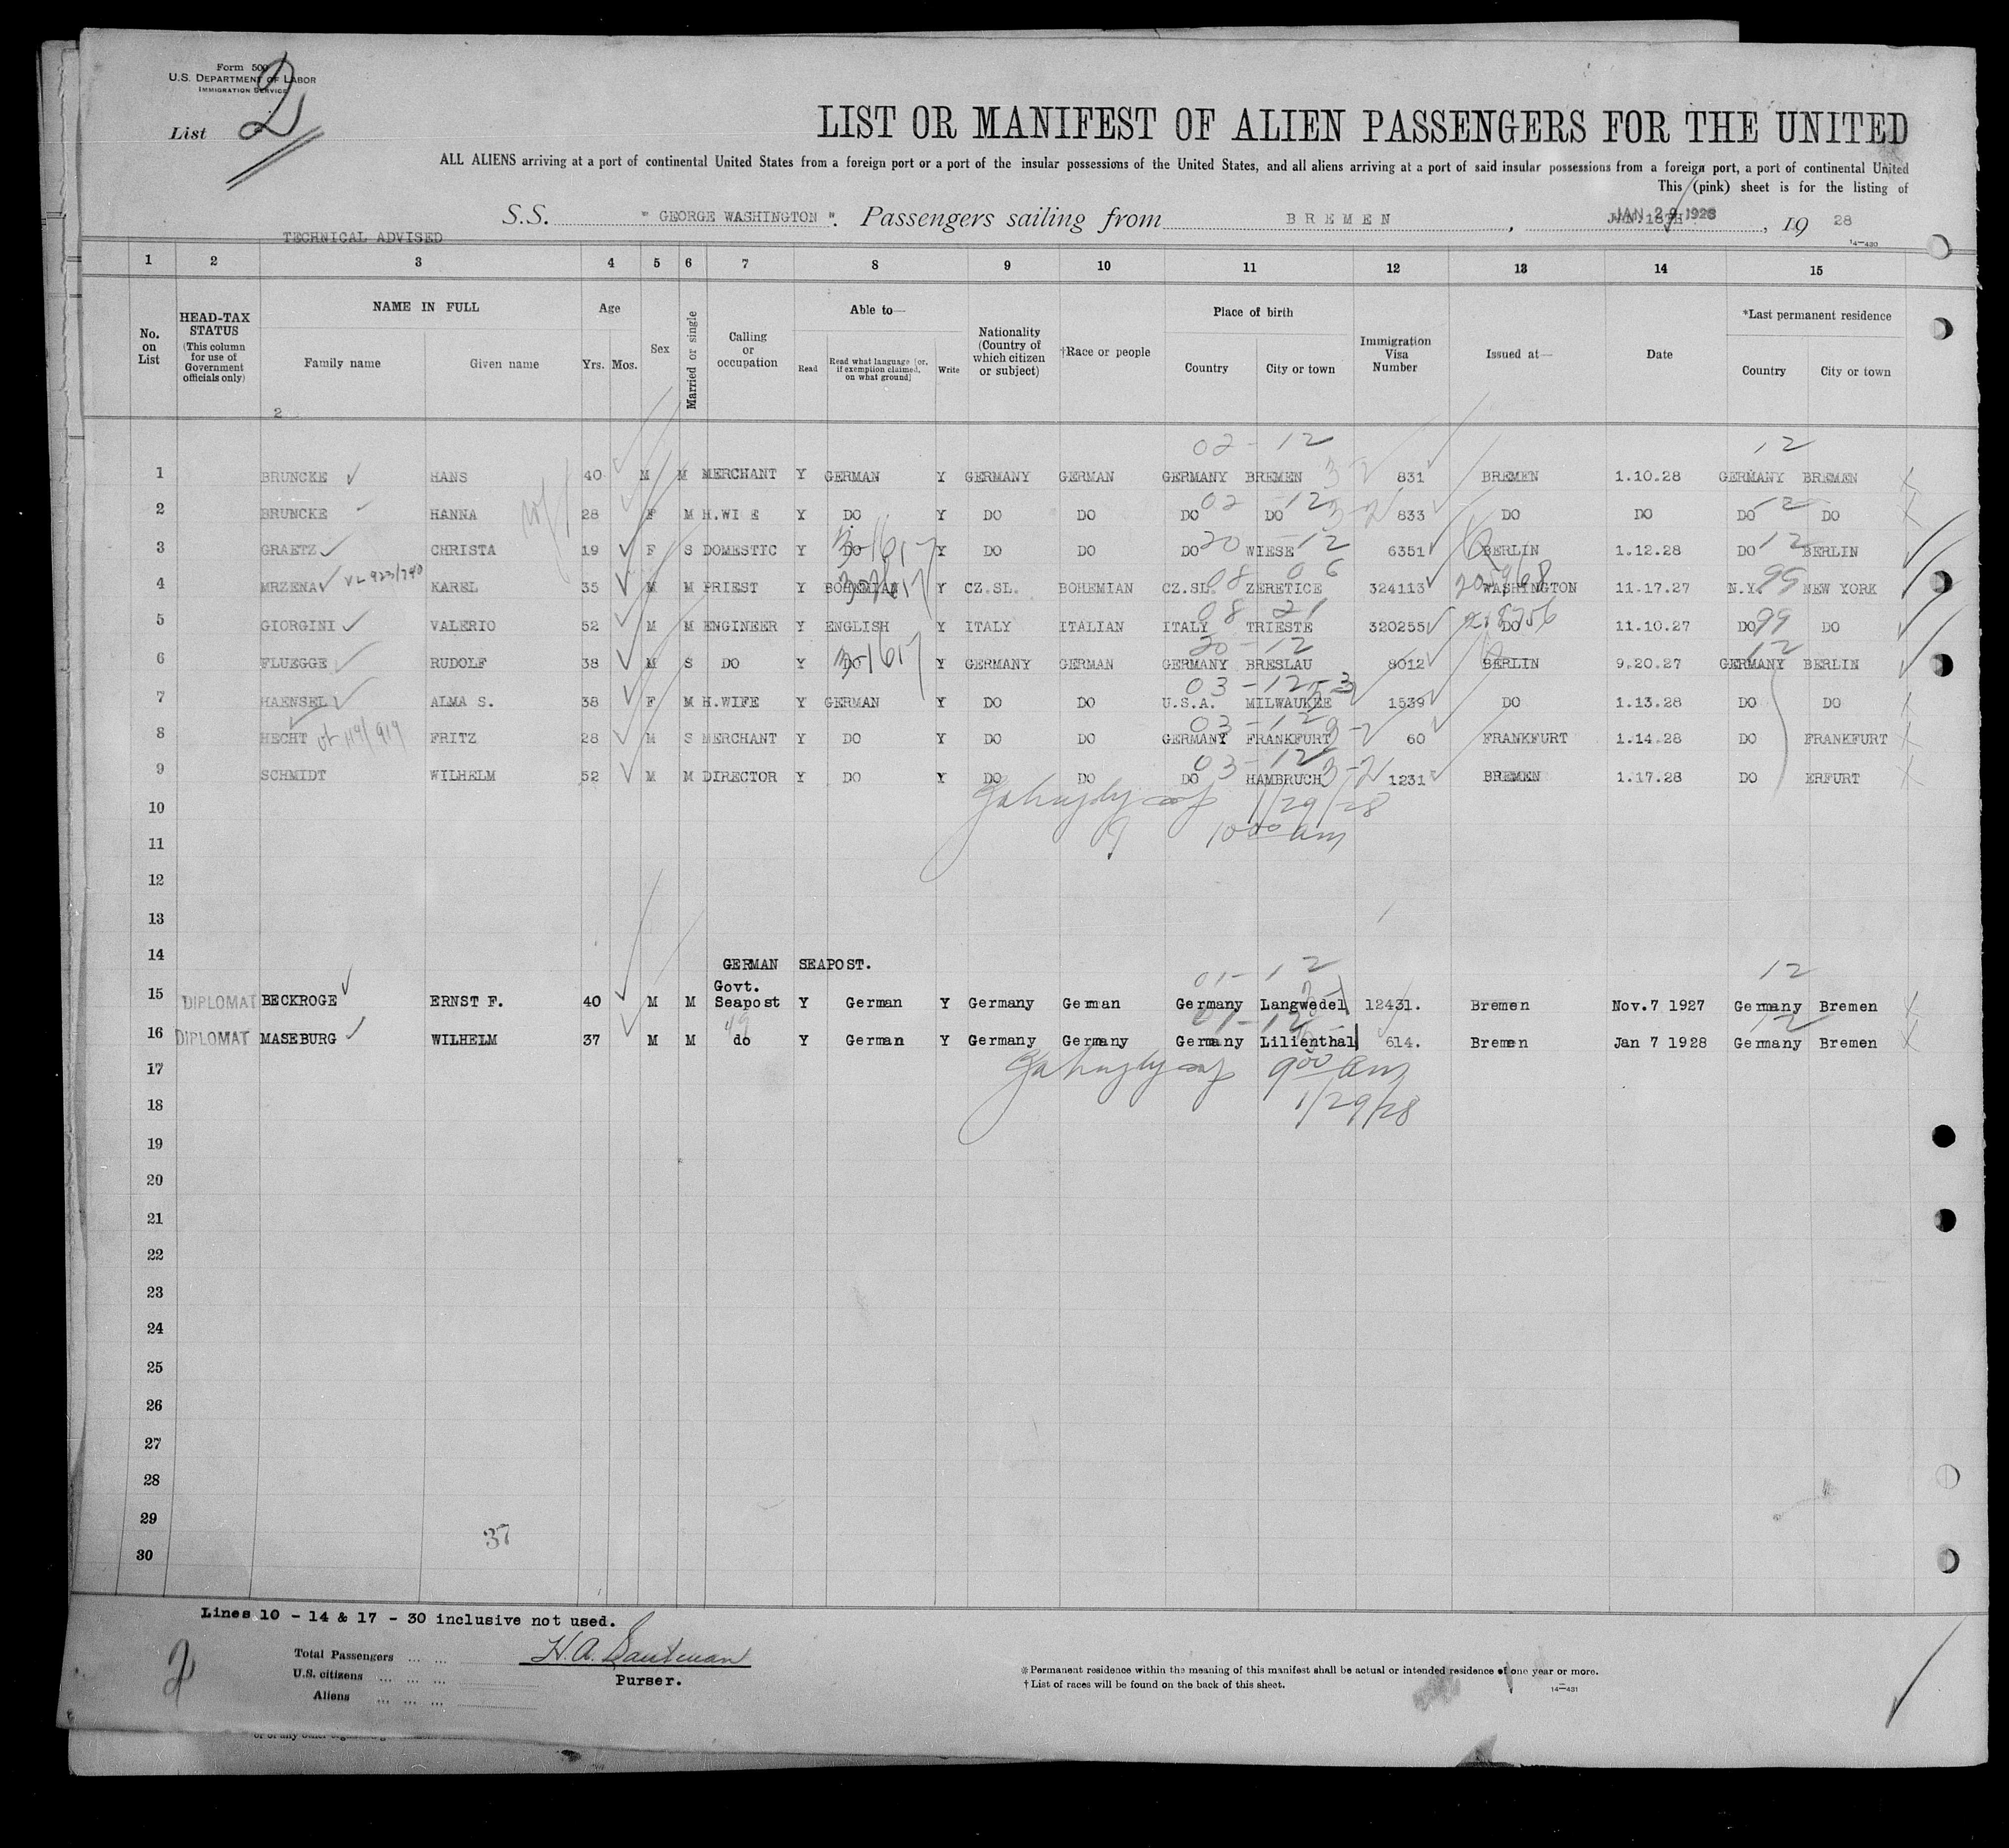 Form 500
U.S. DEPARTMENT OF LABOR
IMMIGRATION SERVICE
List 2
LIST OR MANIFEST OF ALIEN PASSENGERS FOR THE UNITED
ALL ALIENS arriving at a port of continental United States from a foreign port or a port of the insular possessions of the United States, and all aliens arriving at a port of said insular possessions from a foreign port, a port of continental United
This (pink) sheet is for the listing of
S.S. " GEORGE WASHINGTON ". Passengers sailing from BREMEN, JAN. 18TH JAN 29 1928, 19 28
14—430
TECHNICAL ADVISED
1 2 3 4 5 6 7 8 9 10 11 12 13 14 15
No. on List
HEAD-TAX STATUS (This column for use of Government officials only)
NAME IN FULL
Family name Given name
Age
Yrs. Mos.
Sex
Married or single
Calling or occupation
Able to—
Read Read what language [or, if exemption claimed, on what ground] Write
Nationality (Country of which citizen or subject)
†Race or people
Place of birth
Country City or town
Immigration Visa Number
Issued at—
Date
*Last permanent residence
Country City or town
2
02 - 12 12
1 BRUNCKE HANS 40 M M MERCHANT Y GERMAN Y GERMANY GERMAN GERMANY BREMEN 3-2 831 BREMEN 1.10.28 GERMANY BREMEN
02 - 12 12
2 BRUNCKE HANNA 28 F M H.WI E Y DO Y DO DO DO DO 3-2 833 DO DO DO DO
20 - 12 12
3 GRAETZ CHRISTA 19 F S DOMESTIC Y DO Y DO DO DO WIESE 6351 BERLIN 1.12.28 DO BERLIN
08 - 06 99
4 MRZENA VL 923/740 KAREL 35 M M PRIEST Y BOHEMIAN Y CZ.SL. BOHEMIAN CZ.SL. ZERETICE 324113 WASHINGTON 11.17.27 N.Y. NEW YORK
08 21 99
5 GIORGINI VALERIO 52 M M ENGINEER Y ENGLISH Y ITALY ITALIAN ITALY TRIESTE 320255 DO 11.10.27 DO DO
20 - 12 12
6 FLUEGGE RUDOLF 38 M S DO Y DO Y GERMANY GERMAN GERMANY BRESLAU 8012 BERLIN 9.20.27 GERMANY BERLIN
03 - 12
7 HAENSEL ALMA S. 38 F M H.WIFE Y GERMAN Y DO DO U.S.A. MILWAUKEE 1539 DO 1.13.28 DO DO
03 - 12
8 HECHT FRITZ 28 M S MERCHANT Y DO Y DO DO GERMANY FRANKFURT 60 FRANKFURT 1.14.28 DO FRANKFURT
03 - 12
9 SCHMIDT WILHELM 52 M M DIRECTOR Y DO Y DO DO DO HAMBRUCH 3-2 1231 BREMEN 1.17.28 DO ERFURT
10 1/29/28
11 9 10 00 am
12
13
14 GERMAN SEAPOST.
01 - 12 12
Govt.
15 DIPLOMAT BECKROGE ERNST F. 40 M M Seapost Y German Y Germany German Germany Langwedel 12431. Bremen Nov.7 1927 Germany Bremen
01 - 12 12
16 DIPLOMAT MASEBURG WILHELM 37 M M do Y German Y Germany Germany Germany Lilienthal 614. Bremen Jan 7 1928 Germany Bremen
17 9 00 am
18 1/29/28
19
20
21
22
23
24
25
26
27
28
29
37
30
Lines 10 - 14 & 17 - 30 inclusive not used.
2
Total Passengers ... ...
U.S. citizens ... ... ...
Aliens ... ... ...
H.A.
Purser.
* Permanent residence within the meaning of this manifest shall be actual or intended residence of one year or more.
† List of races will be found on the back of this sheet.
14—431